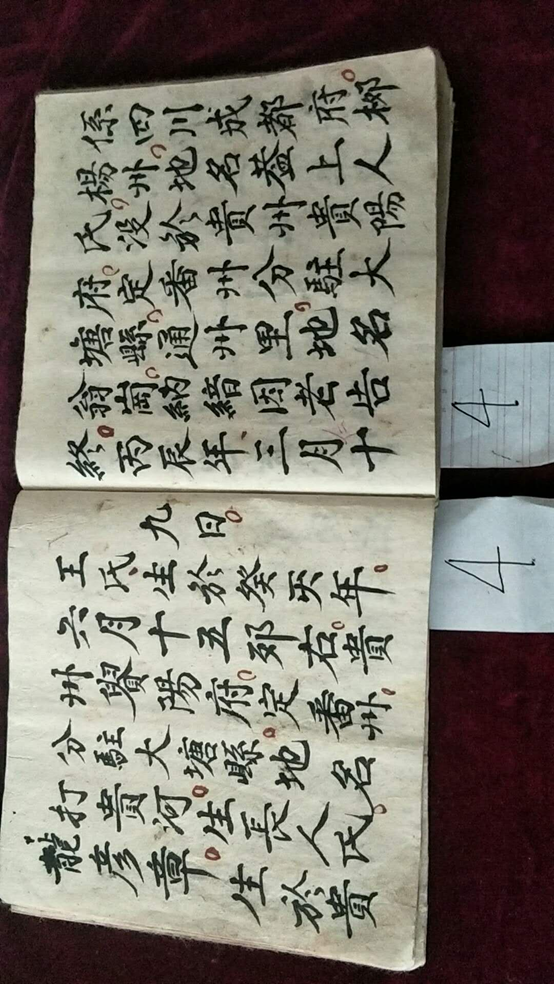 係四川成都府。柳
楊州。地名荅上人
氏。没於貴州貴陽
府。定番州分。駐大
塘縣。通州里地名
翁崗。納緒因老告
終。丙辰年、三月十
九日。
王氏生於癸亥年。
六月十五卯右。貴
州貿陽府。定番州。
分駐大塘縣。地名
打貴河。生長人氏。
龍彦章。生於貴
4
4